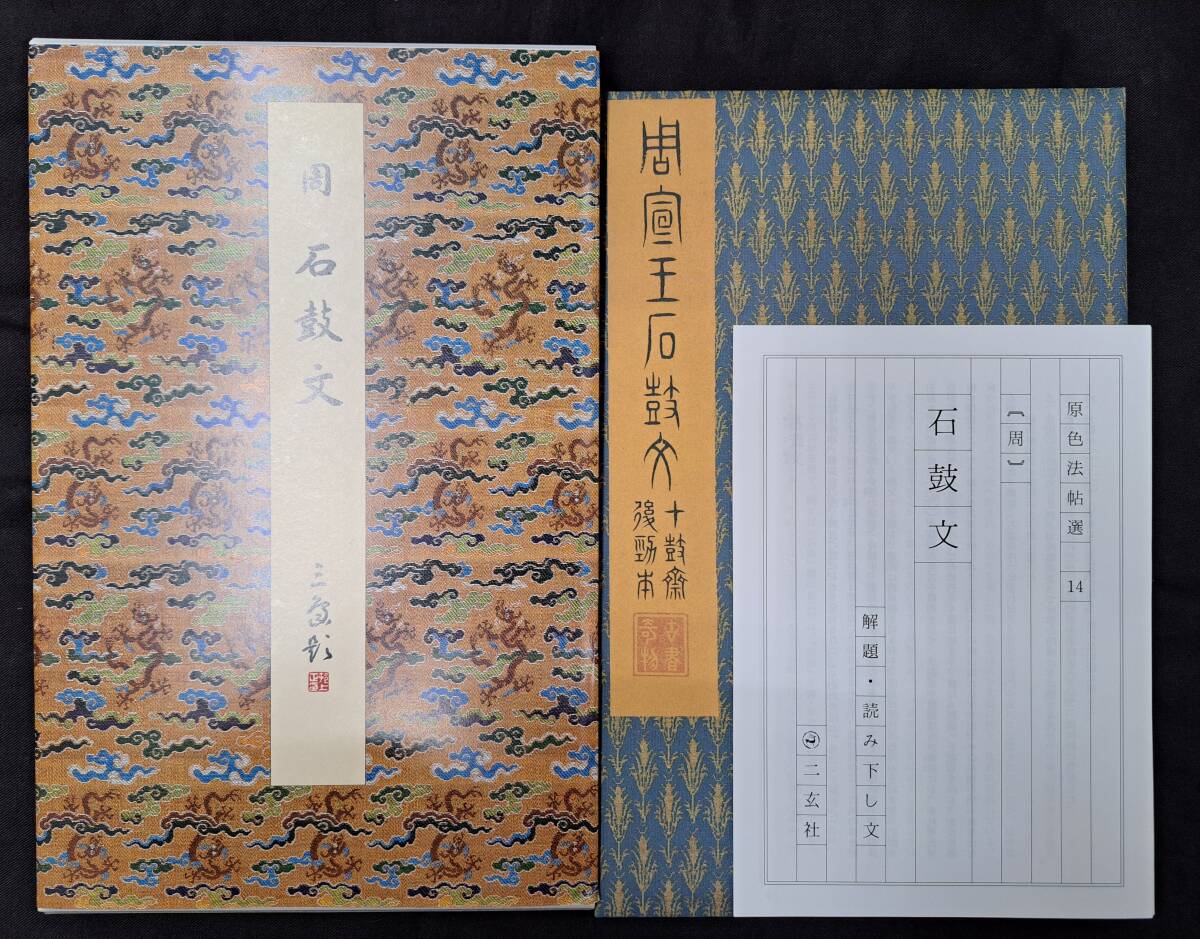 周 石鼓文
三象題
周宣王石鼓文
十鼓齋
後勁本
原色法帖選 14
〔周〕
石鼓文
解題・読み下し文
二玄社